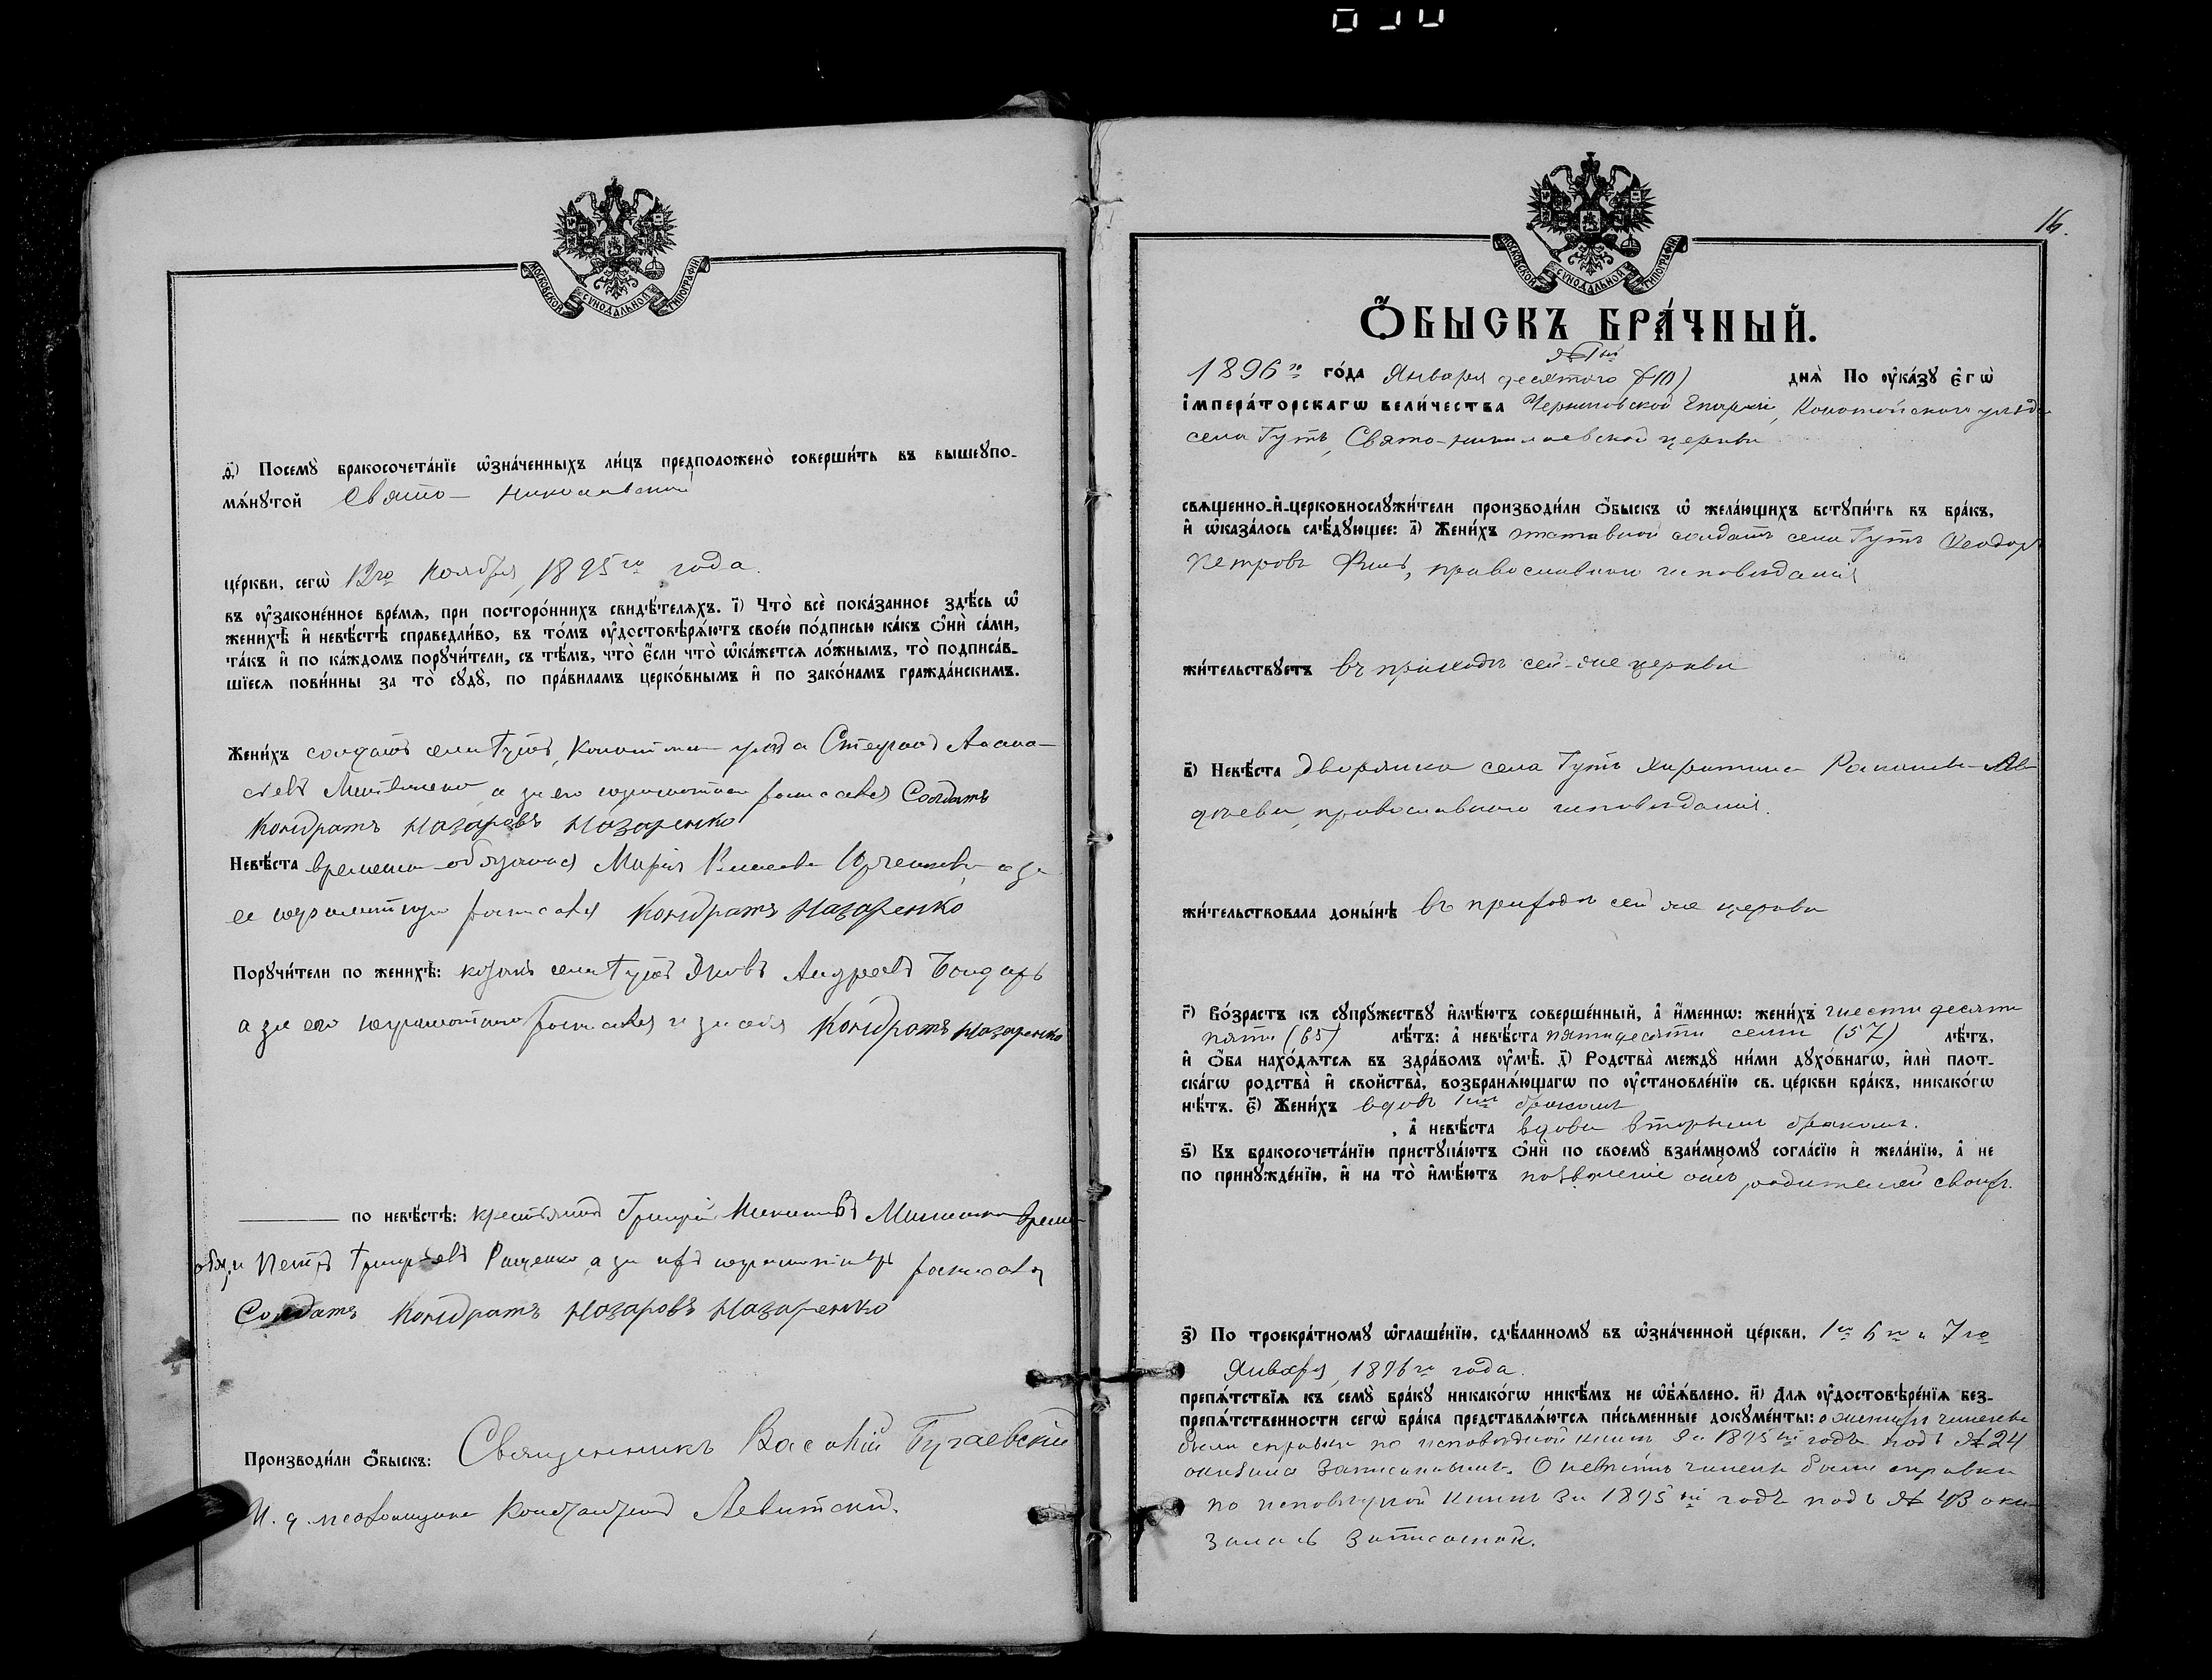 МОСКОВСКОЙ СУНОДАЛЬНОЙ ТИПОГРАФІИ
д҃і) Посемꙋ̀ бракосочета́нїе ѡ҆зна́ченныхъ ли́цъ предположено̀ соверши́ть въ вышеупо-
мѧ́нꙋтой Свято-Николаевской
це́ркви, сегѡ̀ 12го Ноября, 1895го года.
въ ѹ҆законе́нное вре́мѧ, при посторо́ннихъ свидѣ́телѧхъ. і҃) Что̀ всѐ пока́занное здѣ́сь ѡ҆
женихѣ̀ и҆ невѣ́стѣ справедли́во, въ то́мъ ѹ҆достовѣрѧ́ютъ свое́ю по́дписью ка́къ ѻ҆нѝ са́ми,
та́къ и҆ по ка́ждомъ порꙋчи́тели, съ тѣ́мъ, что̀ є҆́сли что̀ ѡ҆ка́жетсѧ ло́жнымъ, то̀ подписа́в-
шїесѧ пови́нны за то̀ сꙋдꙋ̀, по пра́виламъ церко́внымъ и҆ по зако́намъ гражда́нскимъ.
Жени́хъ солдатъ села Гутъ, уезда Стефанъ
а за его неграмотнаго росписался Солдатъ
Кондратъ Назаровъ Назаренко
Невѣ́ста временно-обязаная Марія а за
ее неграмотную росписался Кондратъ Назаренко
Порꙋчи́тели по женихѣ̀: козакъ села Гутъ Яковъ Андреевъ Бондарь
а за его неграмотнаго росписался и за себя Кондратъ Назаренко
по невѣ́стѣ: крестьянинъ Григорій
Петръ Григорьевъ а за ихъ неграмотныхъ росписался
Солдатъ Кондратъ Назаровъ Назаренко
Производи́ли ѻ҆́быскъ: Священникъ Василій Бугаевскій
И. д. псаломщика Константинъ Левитскій.
16.
МОСКОВСКОЙ СУНОДАЛЬНОЙ ТИПОГРАФІИ
Ѻ҆́БЫСКЪ БРА́ЧНЫЙ.
№ 1ый
1896го го́да Января десятого (10) днѧ̀ По ѹ҆ка́зꙋ є҆гѡ̀
і҆мпера́торскагѡ вели́чества Черниговской Епархіи, Конотопскаго уезда
села Гутъ, Свято-Николаевской церкви
свѧщенно-и҆-церковнослꙋжи́тели производи́ли ѻ҆́быскъ ѡ҆ жела́ющихъ встꙋпи́ть въ бра́къ,
и҆ ѡ҆каза́лось слѣ́дꙋющее: а҃) Жени́хъ отставной солдатъ села Гутъ Феодоръ
Петровъ православнаго исповеданія
жи́тельствꙋетъ въ приходе сей-же церкви
в҃) Невѣ́ста Дворянка села Гутъ Харитина
православнаго исповеданія.
жи́тельствовала доны́нѣ въ приходе сей же церкви
г҃) Во́зрастъ къ сꙋпрꙋ́жествꙋ и҆мѣ́ютъ соверше́нный, а҆ и҆́меннѡ: жени́хъ шестидесяти
пяти (65) лѣ́тъ: а҆ невѣ́ста пятидесяти семи (57) лѣ́тъ,
и҆ ѻ҆́ба нахо́дѧтсѧ въ здра́вомъ ѹ҆мѣ̀. д҃) Родства̀ междꙋ̀ ни́ми дꙋхо́внагѡ, и҆лѝ плот-
ска́гѡ родства̀ и҆ свойства̀, возбранѧ́ющагѡ по ѹ҆становле́нїю св. це́ркви бра́къ, никако́гѡ
нѣ́тъ. є҃) Жени́хъ вдовъ 1мъ бракомъ
, а҆ невѣ́ста вдова вторымъ бракомъ.
ѕ҃) Къ бракосочета́нїю пристꙋпа́ютъ ѻ҆нѝ по своемꙋ̀ взаи́мномꙋ согла́сїю и҆ жела́нїю, а҆ не
по принꙋжде́нїю, и҆ на то̀ и҆мѣ́ютъ позволеніе отъ родителей своихъ.
з҃) По троекра́тномꙋ ѡ҆глаше́нїю, сдѣ́ланномꙋ въ ѡ҆зна́ченной це́ркви, 1го 6го и 7го
Января, 1896го года.
препѧ́тствїѧ къ семꙋ̀ бра́кꙋ никако́гѡ никѣ́мъ не ѡ҆б̾ѧ́влено. и҃) Длѧ ѹ҆достовѣре́нїѧ без-
препѧ́тственности сегѡ̀ бра́ка представлѧ́ютсѧ пи́сьменные докꙋме́нты: о женихе чинены
были справки по исповедной книге за 1895ый годъ подъ № 24
оказался записанымъ. О невесте чинены были справки
по исповедной книге за 1895ый годъ подъ № 43 ока-
залась записаной.